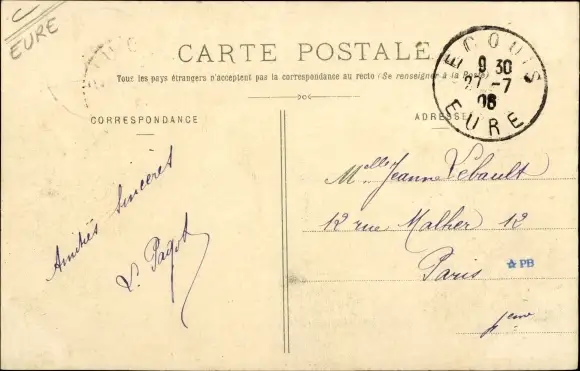 EURE
CARTE POSTALE
Tous les pays étrangers n'acceptent pas la correspondance au recto (Se renseigner à la Poste)
ECOUIS
9 30
27 -7
08
EURE
CORRESPONDANCE
ADRESSE
Amitiés Sincères
Melle Jeanne Lebault
12 rue Malher 12
Paris
PB